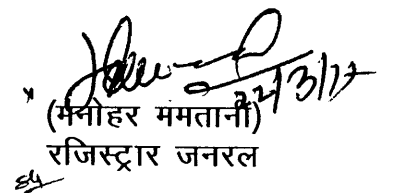 22/3/17
(मनोहर ममतानी)
रजिस्ट्रार जनरल